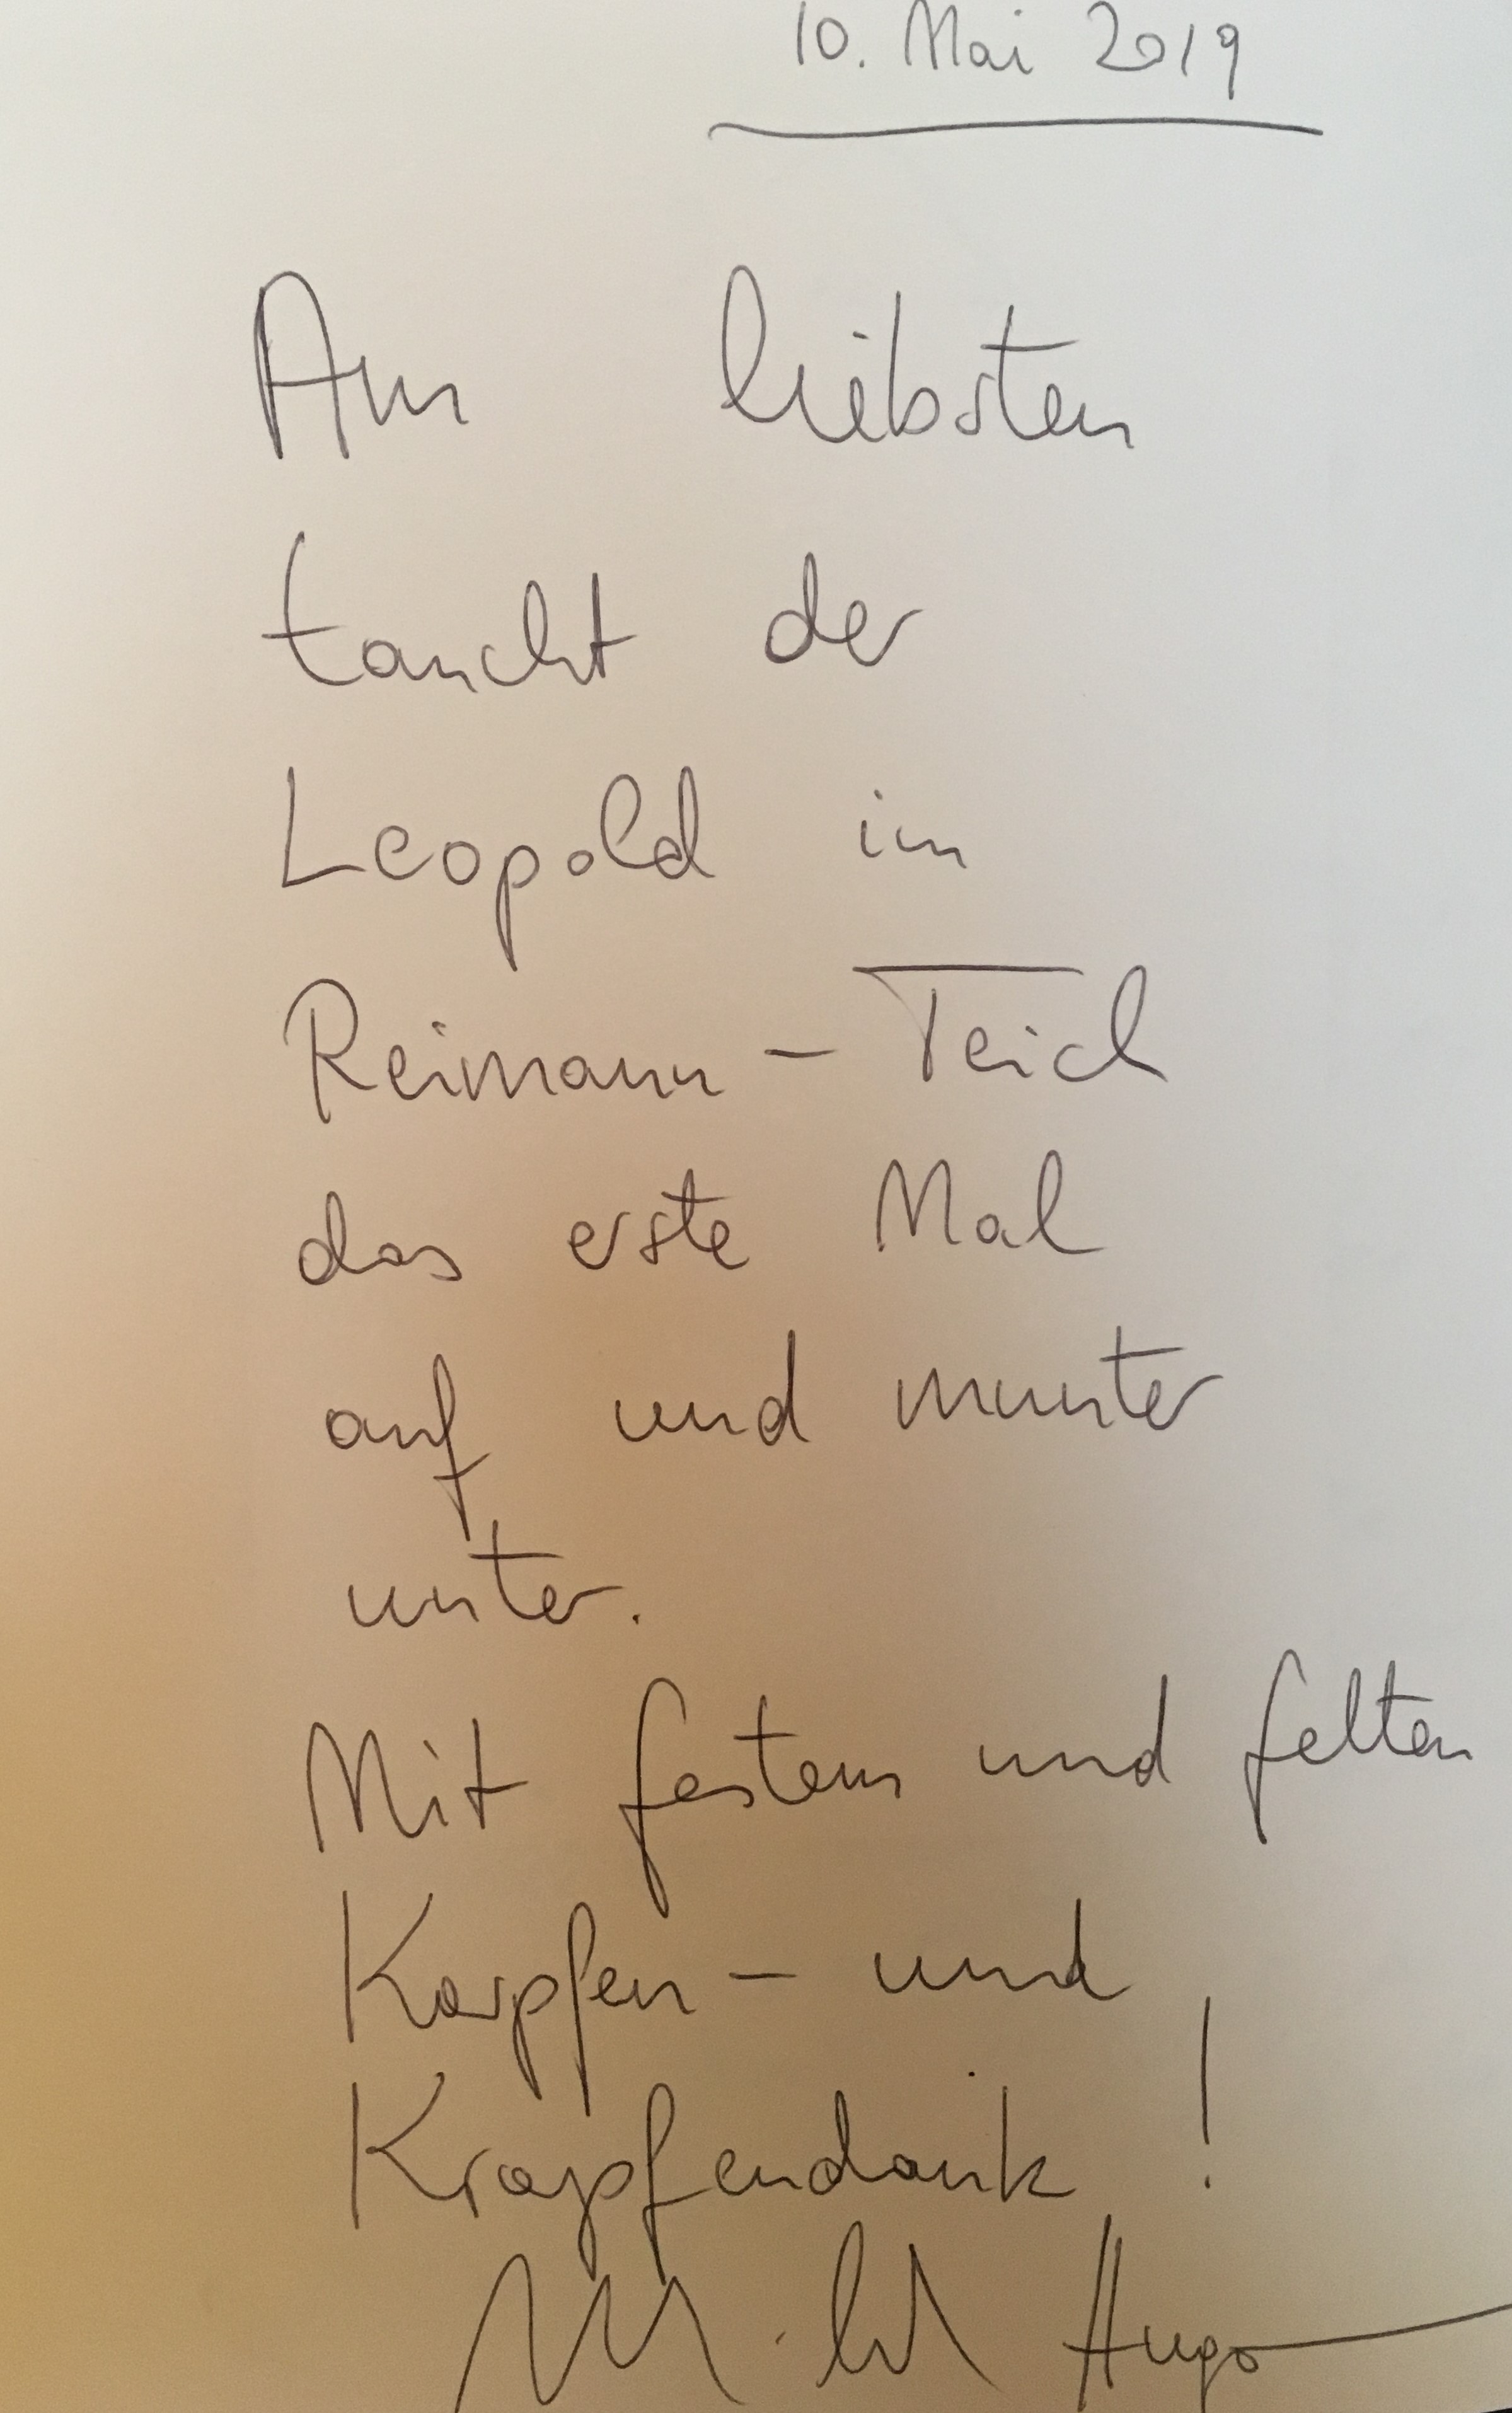 10. Mai 2019
Am liebsten
taucht der
Leopold im
Reimann - Teich
das erste Mal
auf und munter
unter.
Mit festem und fettem
Karpfen - und
Krapfendank !
Hugo